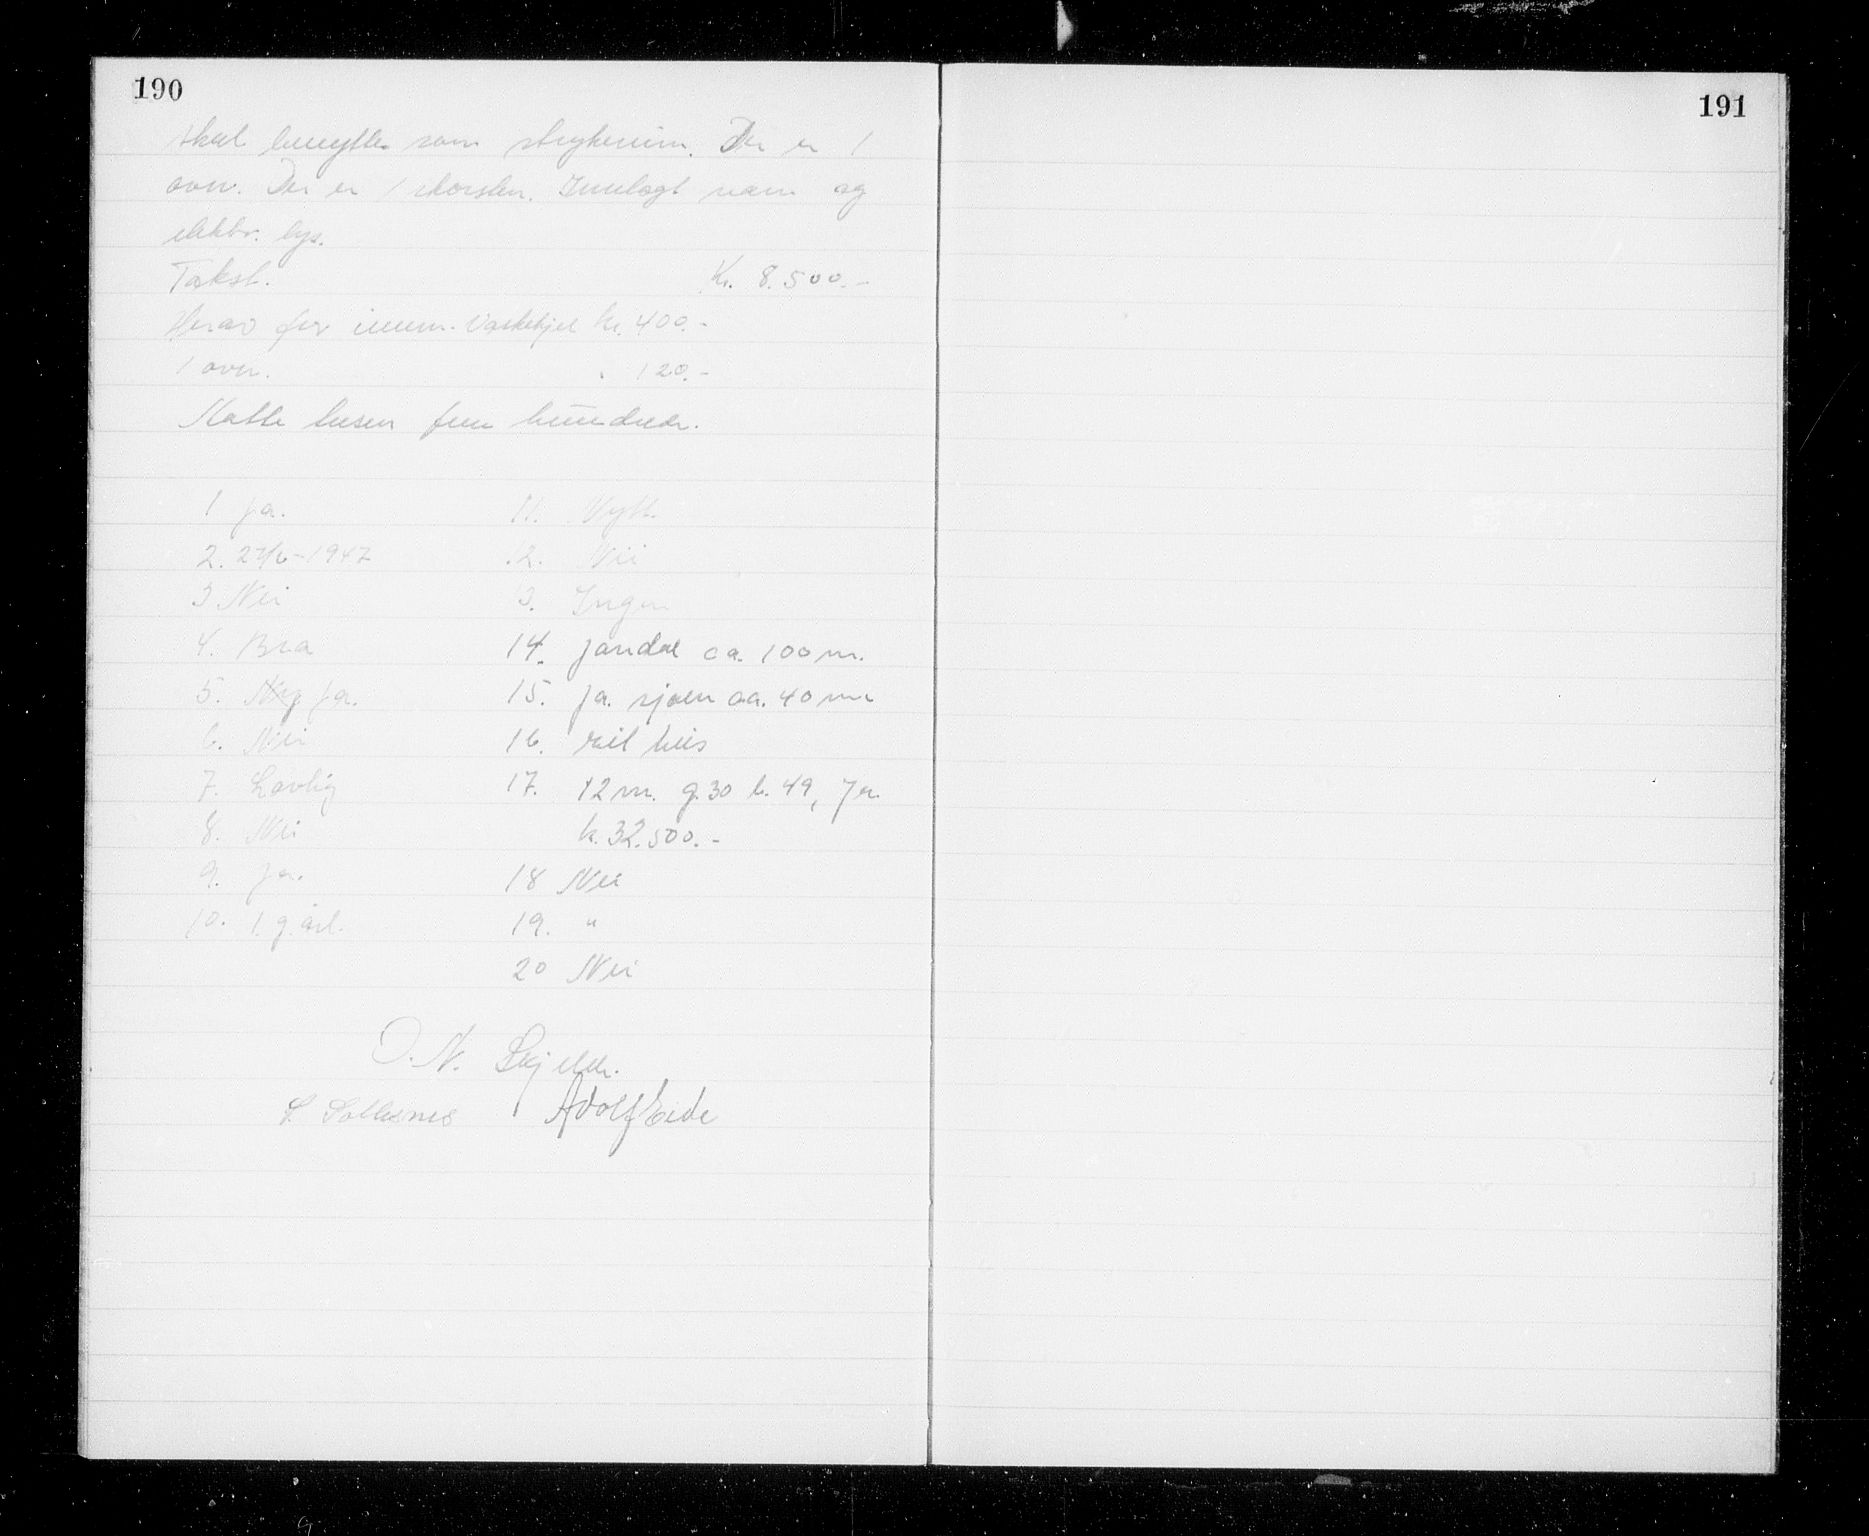 190
skal benyttes som strykerum. Der er 1
ovn. Der er 1 skorsten. Innlagt vann og
elektr. lys.
Takst. Kr. 8.500.-
Herav for innm. vaskekjel kr. 400.-
1 ovn. " 120.-
Åtte tusen fem hundrede.
1 Ja. 11.
2. 27/6-1947 12. Nei
3 Nei 13. Ingen
4. Bra 14. Jarudal ca. 100 m.
5. Ja. 15. Ja. sjøen ca. 40 m
6. Nei 16. hus
7. Lovlig 17. 12 m. g.30 b. 49, Ja.
8. Nei k. 32.500.-
9. Ja. 18 Nei
10. 1 g. årl. 19. "
20 Nei
O. N. Skjelde.
S. Sollesnes Adolf Eide
191